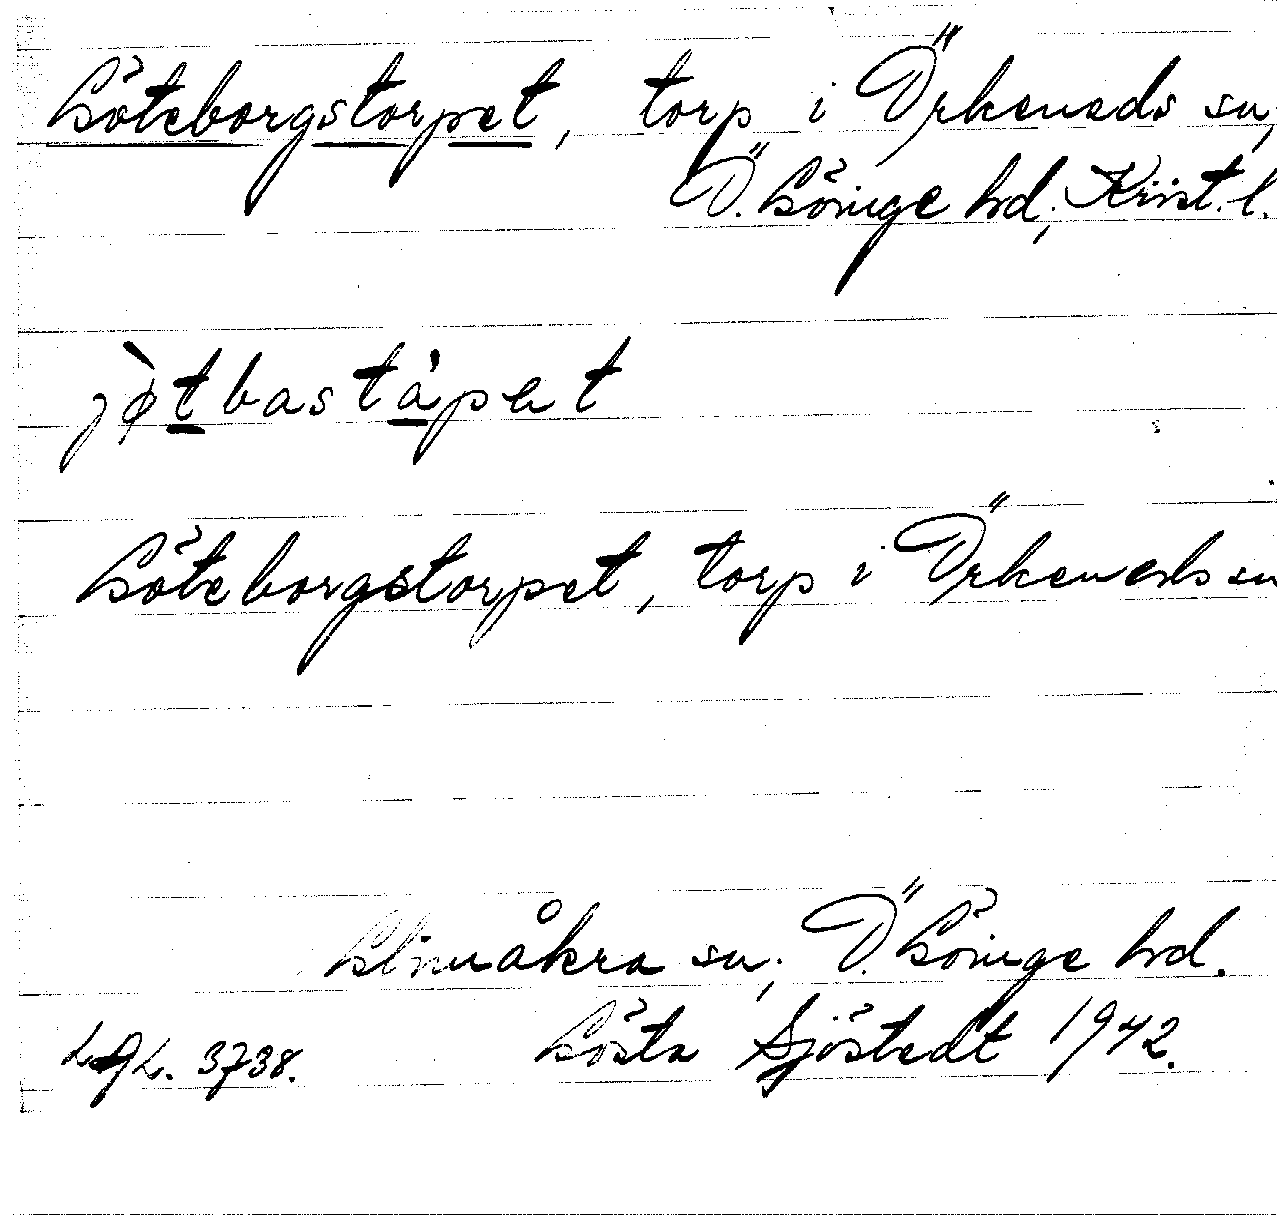 Göteborgstorpet, torp i Örkeneds sn,
Ö. Göinge hd, Krist. l.
jø̀tbaståpet
Göteborgstorpet, torp i Örkeneds sn
Glimåkra sn, Ö. Göinge hd.
3738. Gösta Sjöstedt 1942.